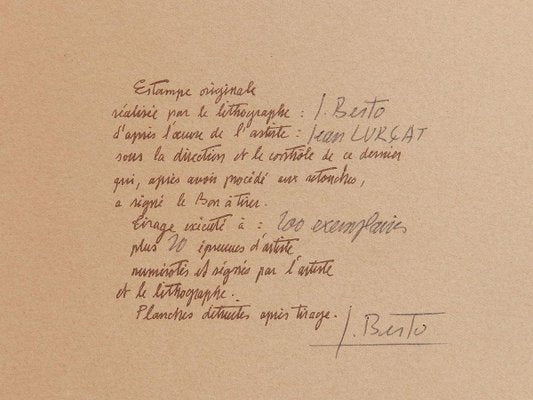 Estampe originale
réalisée par le lithographe : J. Berto
d'après l'œuvre de l'artiste : Jean LURÇAT
sous la direction et le contrôle de ce dernier
qui, après avoir procédé aux retouches,
a signé le Bon à tirer.
Tirage exécuté à : 200 exemplaires
plus 20 épreuves d'artiste
numérotés et signés par l'artiste
et le lithographe.
Planches détruites après tirage.
J. Berto